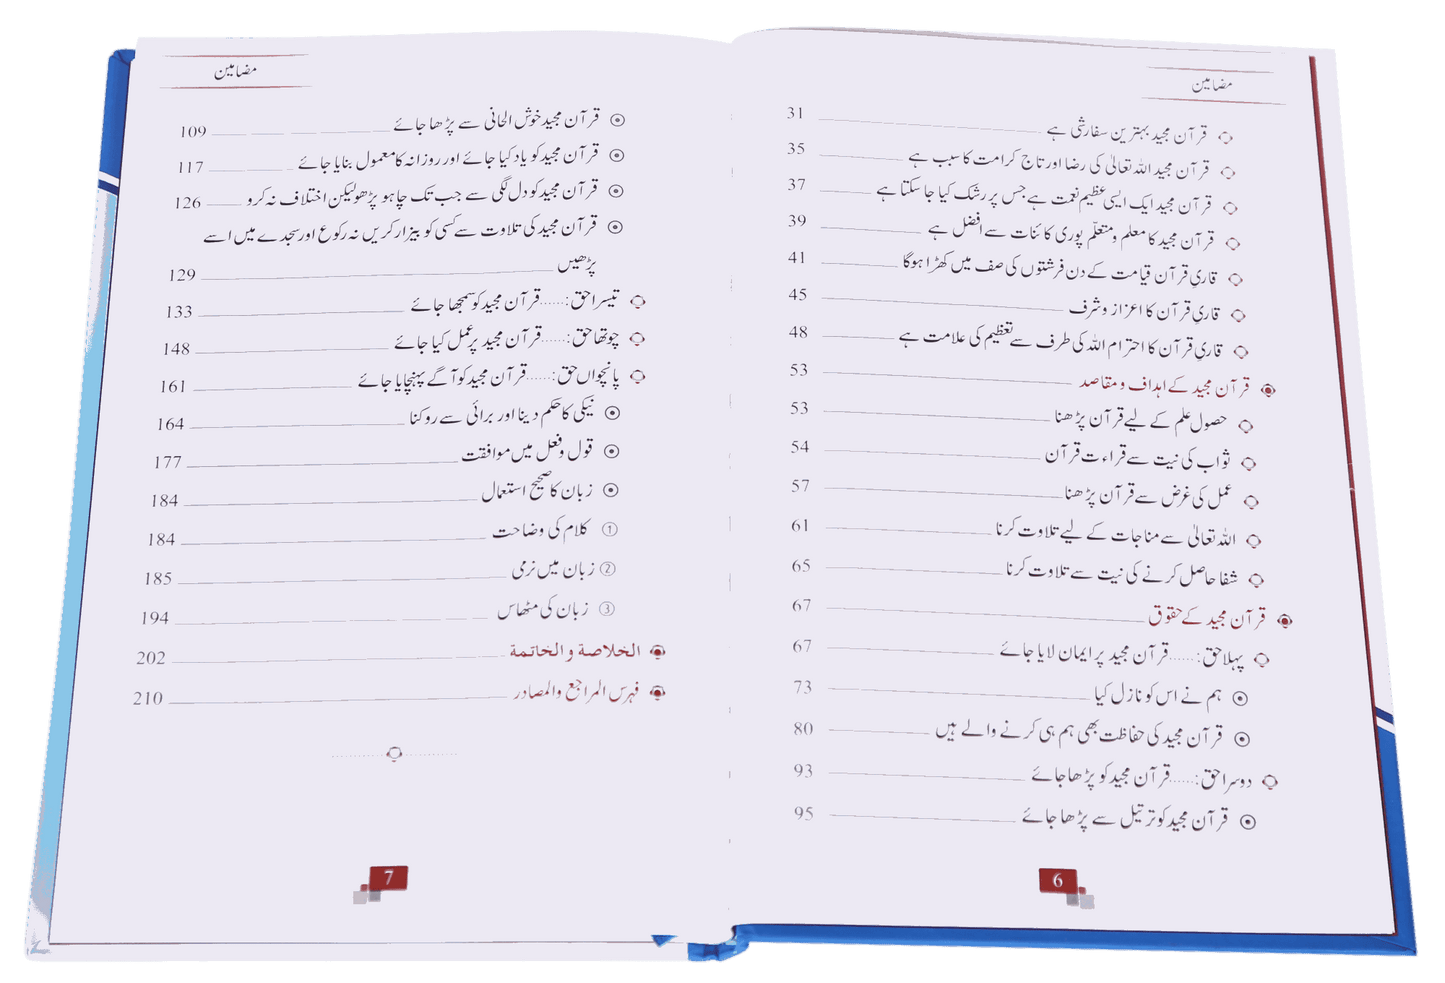 مضامین
قرآن مجید بہترین سفارشی ہے 31
قرآن مجید اللہ تعالیٰ کی رضا اور تاج کرامت کا سبب ہے 35
قرآن مجید ایک ایسی عظیم نعمت ہے جس پر رشک کیا جا سکتا ہے 37
قرآن مجید کا معلم و متعلّم پوری کائنات سے افضل ہے 39
قاریِ قرآن قیامت کے دن فرشتوں کی صف میں کھڑا ہوگا 41
قاریِ قرآن کا اعزاز و شرف 45
قاریِ قرآن کا احترام اللہ کی طرف سے تعظیم کی علامت ہے 48
قرآن مجید کے اہداف و مقاصد 53
حصول علم کے لیے قرآن پڑھنا 53
ثواب کی نیت سے قراءت قرآن 54
عمل کی غرض سے قرآن پڑھنا 57
اللہ تعالیٰ سے مناجات کے لیے تلاوت کرنا 61
شفا حاصل کرنے کی نیت سے تلاوت کرنا 65
قرآن مجید کے حقوق 67
پہلا حق:......قرآن مجید پر ایمان لایا جائے 67
ہم نے اس کو نازل کیا 73
قرآن مجید کی حفاظت بھی ہم ہی کرنے والے ہیں 80
دوسرا حق:.....قرآن مجید کو پڑھا جائے 93
قرآن مجید کو ترتیل سے پڑھا جائے 95
6
مضامین
قرآن مجید خوش الحانی سے پڑھا جائے 109
قرآن مجید کو یاد کیا جائے اور روزانہ کا معمول بنایا جائے 117
قرآن مجید کو دل لگی سے جب تک چاہو پڑھو لیکن اختلاف نہ کرو 126
قرآن مجید کی تلاوت سے کسی کو بیزار کریں نہ رکوع اور سجدے میں اسے
پڑھیں 129
تیسرا حق:......قرآن مجید کو سمجھا جائے 133
چوتھا حق:......قرآن مجید پر عمل کیا جائے 148
پانچواں حق:......قرآن مجید کو آگے پہنچایا جائے 161
نیکی کا حکم دینا اور برائی سے روکنا 164
قول و فعل میں موافقت 177
زبان کا صحیح استعمال 184
① کلام کی وضاحت 184
② زبان میں نرمی 185
③ زبان کی مٹھاس 194
الخلاصة والخاتمة 202
فہرس المراجع والمصادر 210
7